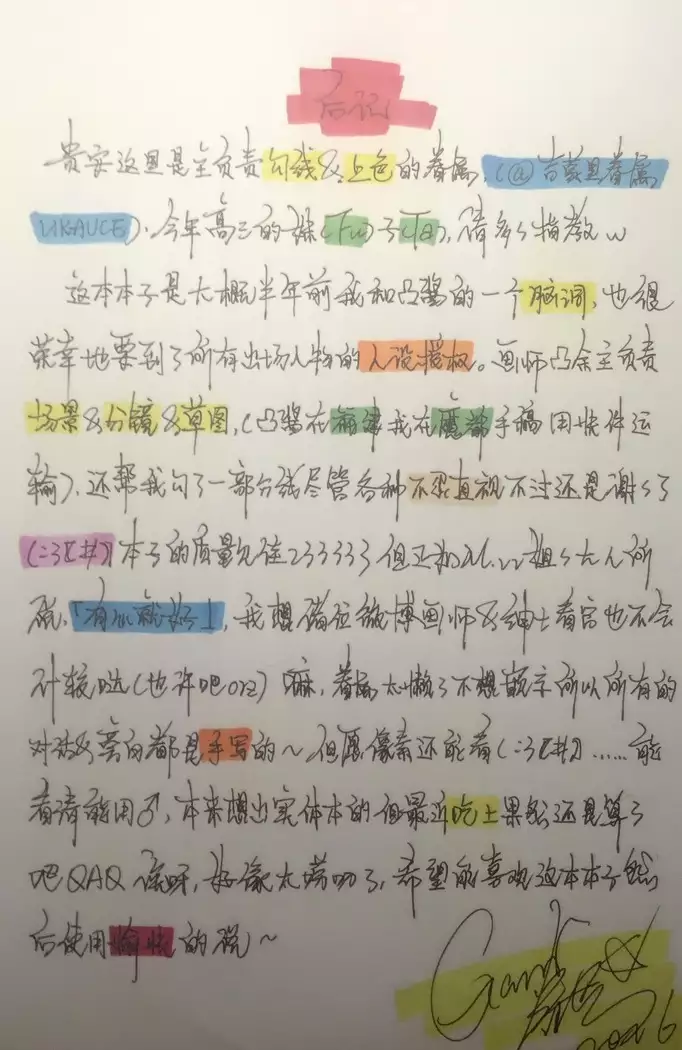 后记
贵安这里是主负责勾线&上色的眷属,(@吉蒙里眷属
UKGAUCE).今年高三的孩(Fu)子(Ta),请多多指教w
这本本子是大概半年前我和凸酱的一个脑洞,也很
荣幸地要到了所有出场人物的人设授权。画师凸余主负责
场景&分镜&草图,(凸酱在 我在 手稿用快件运
输).还帮我勾了一部分线尽管各种不忍直视不过还是谢谢了
(:з[#)本子的质量 233333但正如M. 姐姐大人所
说,「有 就好」,我想诸位微博画师&绅士看官也不会
计较哒(也许吧orz)嘛,眷属太懒了不想嵌字所以所有的
对话&旁白都是手写的~但愿像素还能看(:з[#)......能
看清能用♂,本来想出实体本的但最近吃土果然还是算了
吧QAQ 哎呀,好像太唠叨了,希望能喜欢这本本子然
后使用愉快的说~